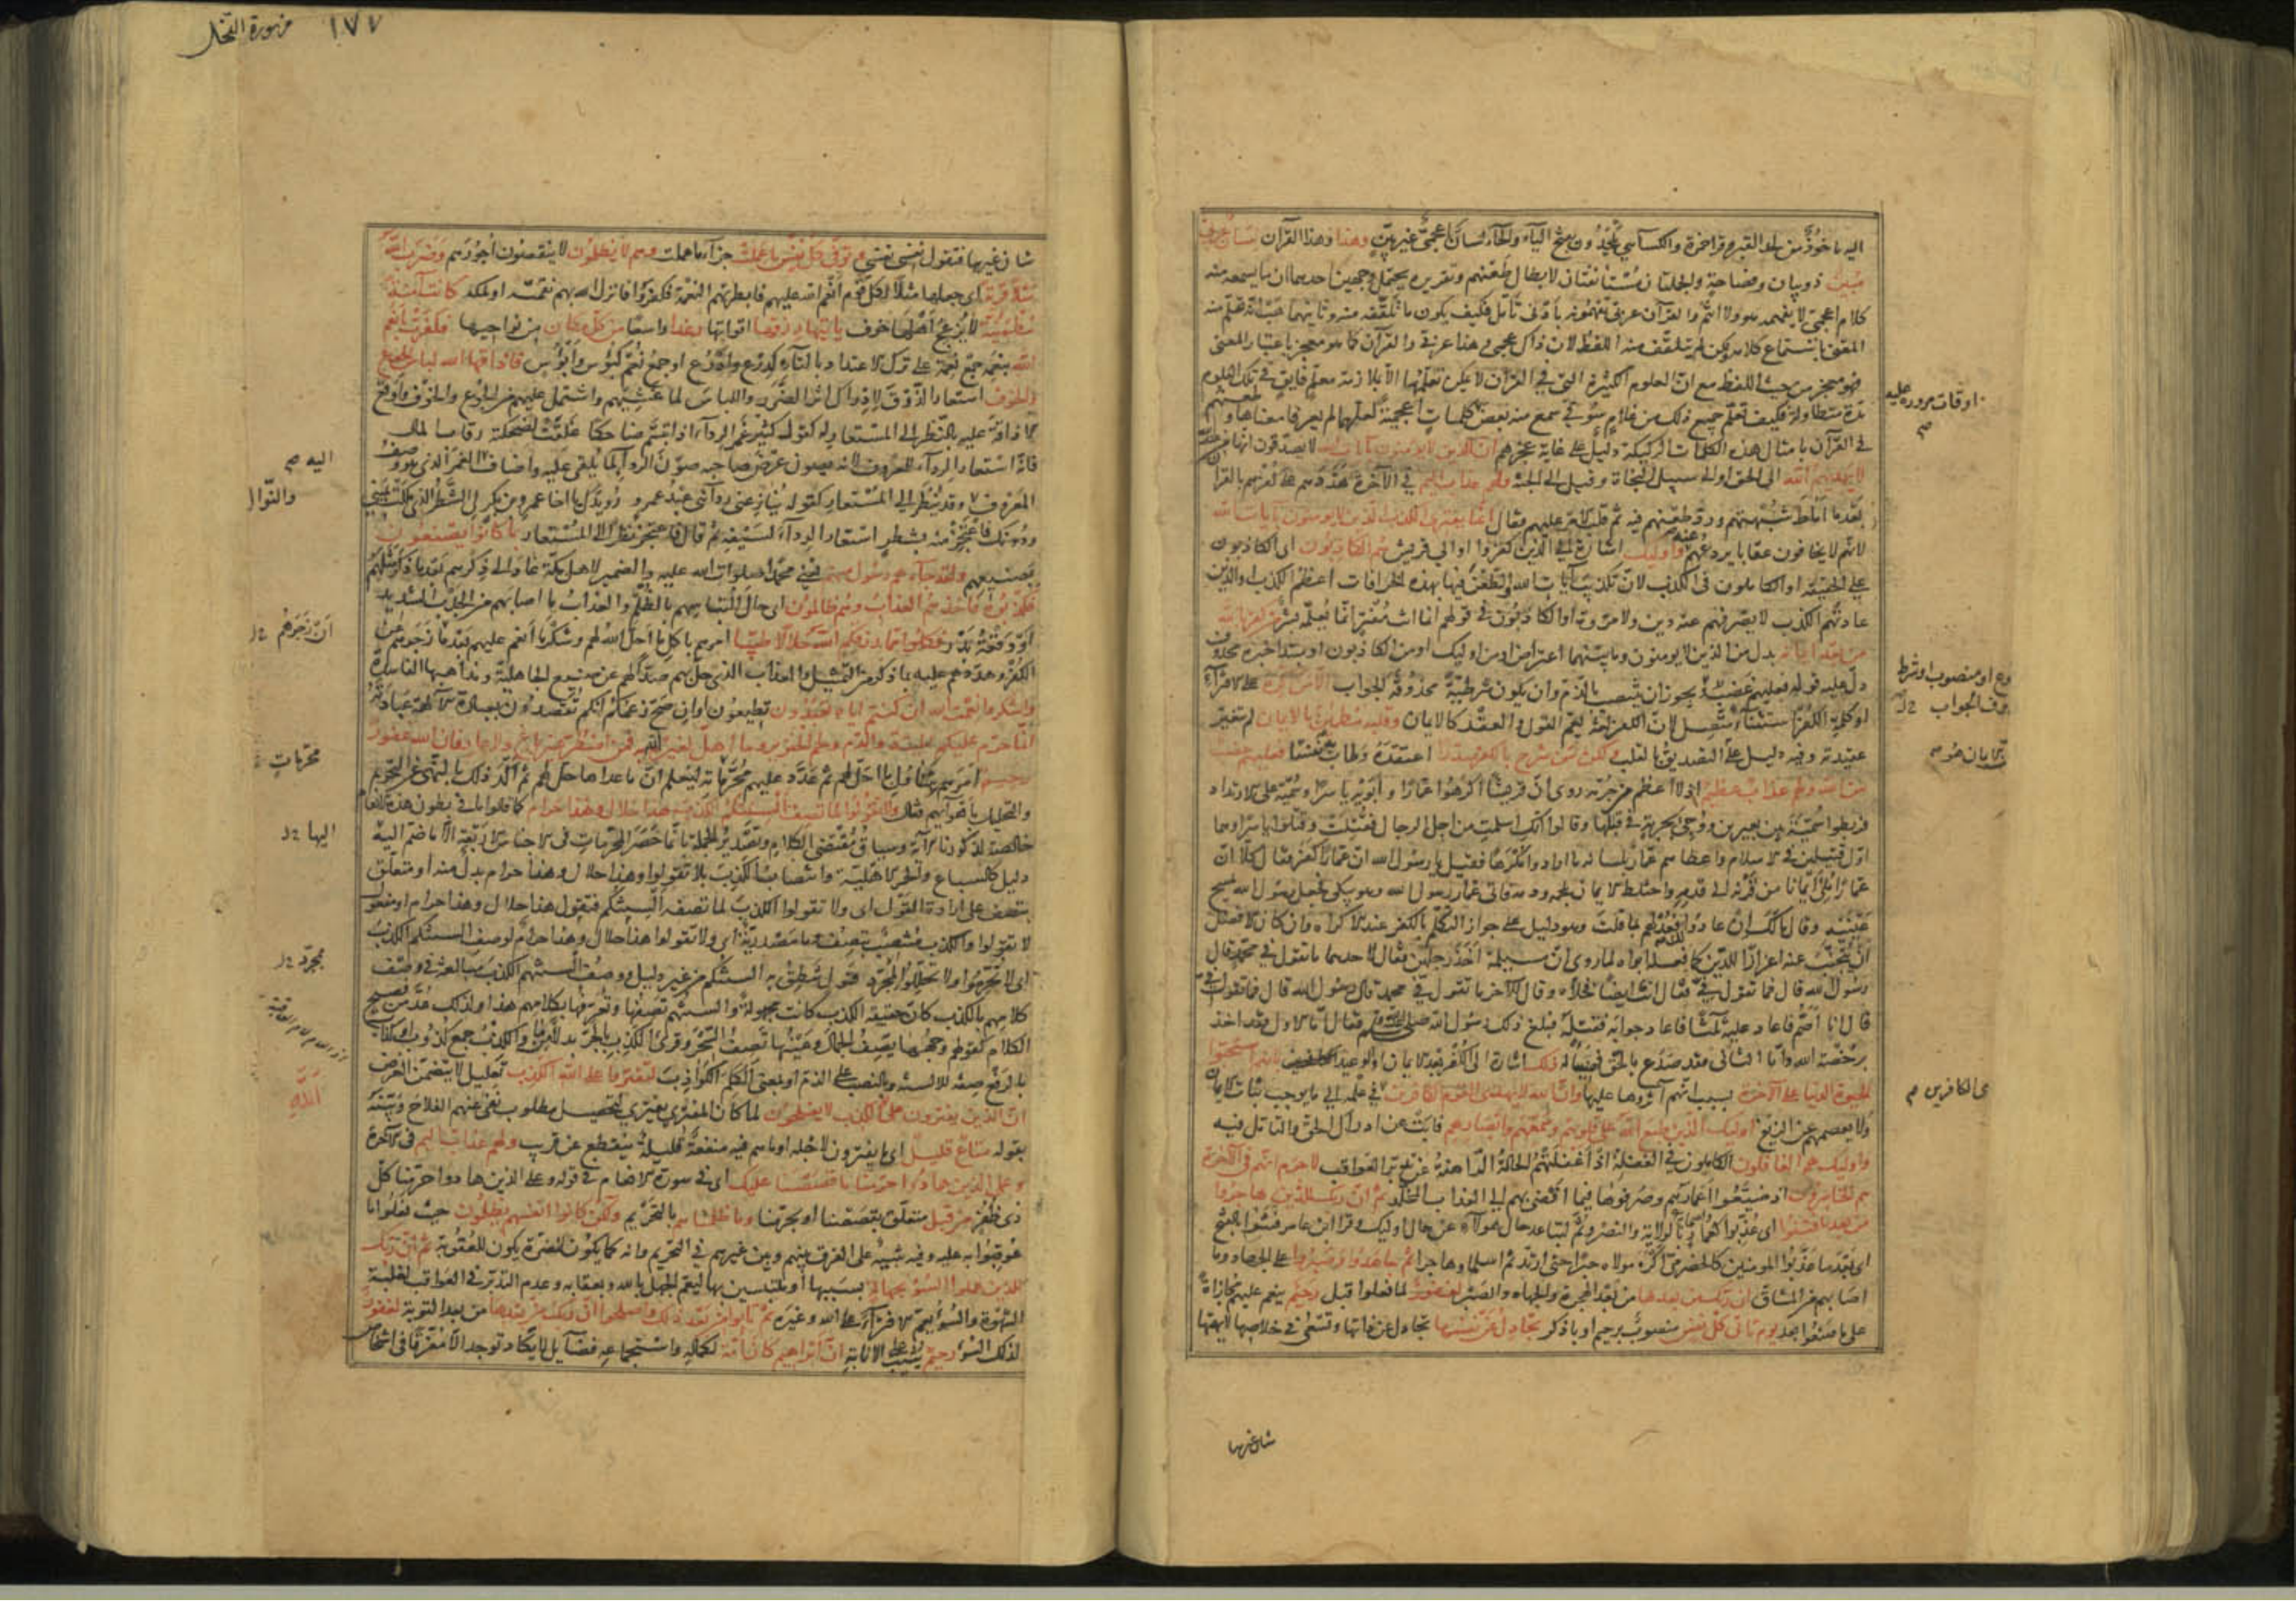 اليه ماخوذ من لحد القبر وقرأ حمزة والكسآئي يلحدون بفتح الياء والحاء لسان اعجمي غير بين وهذا وهذا القرآن لسان عربي
مبين ذو بيان وفصاحة والجملتان مستأنفتان لابطال طعنهم وتقريره يحتمل وجهين احدهما ان ما يسمعه منه
كلام اعجمي لا يفهمه هو ولا انتم والقرآن عربي تفهمونه بادنى تأمل فكيف يكون ما تلقفه منه وثانيهما هب انه تعلم منه
المعنى باستماع كلامه ولكن لم يتلقف منه اللفظ لان ذاك عجمي وهذا عربي والقرآن كما هو معجز باعتبار المعنى
فهو معجز من حيث اللفظ مع ان العلوم الكثيرة التي في القرآن لا يمكن تعلمها الا بملازمة معلم فايق في تلك العلوم
مدة متطاولة فكيف تعلم جميع ذلك من غلام سوقي سمع منه بعض كلمات اعجمية لعلهما لم يعرفا معناها وطعنهم
في القرآن بامثال هذه الكلمات الركيكة دليل على غاية عجزهم ان الذين لا يؤمنون بآيات الله لا يصدقون انها من عند
لا يهديهم الله الى الحق او الى سبيل النجاة وقيل الى الجنة ولهم عذاب اليم في الآخرة هددهم على كفرهم بالقرآ
بعدما اماط شبهتهم ورد طعنهم فيه ثم قلب الامر عليهم فقال انما يفتري الكذب الذين لا يؤمنون بآيات الله
لانهم لا يخافون عقابا يردعهم عنه واوليك اشارة الى الذين كفروا او الى قريش هم الكاذبون اي الكاذبون
على الحقيقة او الكاملون في الكذب لان تكذيب آيات الله والطعن فيها بهذه الخرافات اعظم الكذب او الذين
عادتهم الكذب لا يصرفهم عنه دين ولا مروة او الكاذبون في قولهم انما انت مفتر انما يعلمه بشر من كفر بالله
من بعد ايمانه بدل من الذين لا يومنون وما بينهما اعتراض او من اوليك او من الكاذبون او مبتدا خبره محذوف
دل عليه قوله فعليهم غضب ويجوز ان ينتصب بالذم وان يكون شرطية محذوفة الجواب الا من اكره على الافتراء
او كلمة الكفر استثناء متصل لان الكفر لغة يعم القول والعقد كالايمان وقلبه مطمئن بالايمان لم تتغير
عقيدته وفيه دليل على ان التصديق بالقلب ولكن من شرح بالكفر صدرا اعتقده وطاب به نفسا فعليهم غضب
من الله ولهم عذاب عظيم اذ لا اعظم من جرمه روى ان قريشا اكرهوا عمارا وابويه ياسرا وسمية على الارتداد
فربطوا سمية بين بعيرين ووجي بحربة في قبلها وقالوا انك اسلمت من اجل الرجال فقتلت وقتلوا ياسرا وهما
اول قتيلين في الاسلام واعطاهم عمار بلسانه ما ارادوا مكرها فقيل يا رسول الله ان عمارا كفر فقال كلا ان
عمارا ملئ ايمانا من قرنه الى قدمه واختلط الايمان بلحمه ودمه فاتى عمار رسول الله وهو يبكي فجعل رسول الله يمسح
عينيه وقال مالك ان عادوا لك فعد لهم بما قلت وهو دليل على جواز التكلم بالكفر عند الاكراه وان كان الافضل
ان يتجنب عنه اعزازا للدين كما فعله ابواه لما روى ان مسيلمة اخذ رجلين فقال لاحدهما ما تقول في محمد قال
رسول الله قال فما تقول في فقال انت ايضا فخلاه وقال للآخر ما تقول في محمد قال رسول الله قال فما تقول في
قال انا اصم فاعاد عليه ثلثا فاعاد جوابه فقتله فبلغ ذلك رسول الله صلى الله عليه وسلم فقال اما الاول فقد اخذ
برخصة الله واما الثاني فقد صدع بالحق فهنيأ له ذلك اشارة الى الكفر بعد الايمان او الوعيد بانهم استحبوا
الحيوة الدنيا على الآخرة بسبب انهم آثروها عليها وان الله لا يهدي القوم الكافرين في علمه الى ما يوجب ثبات الايمان
ولا يعصمهم عن الزيغ اوليك الذين طبع الله على قلوبهم وسمعهم وابصارهم فابت عن ادراك الحق والتامل فيه
واوليك هم الغافلون الكاملون في الغفلة اذ اغفلتهم الحالة الراهنة عن تدبر العواقب لا جرم انهم في الآخرة
هم الخاسرون اذ ضيعوا اعمارهم وصرفوها فيما افضى بهم الى العذاب المخلد ثم ان ربك للذين هاجروا
من بعد ما فتنوا اي عذبوا كعمار بالولاية والنصر وثم لتباعد حال هولاء عن حال اوليك وقرأ ابن عامر فتنوا بالفتح
اي بعد ما عذبوا المومنين كالحضرمي اكره مولاه جبرا حتى ارتد ثم اسلما وهاجرا ثم جاهدوا وصبروا على الجهاد وما
اصابهم من المشاق ان ربك من بعدها من بعد الهجرة والجهاد والصبر لغفور لما فعلوا قبل رحيم ينعم عليهم مجازاة
على ما صنعوا بعد يوم تاتي كل نفس منصوب برحيم او باذكر تجادل عن نفسها تجادل عن ذاتها وتسعى في خلاصها لا يهمها
شان غيرها
اوقات مروره عليه م
ى الكافرين م
١٧٧ من سورة النحل
شان غيرها فتقول نفسي نفسي وتوفى كل نفس ما عملت جزاء ما عملت وهم لا يظلمون لا ينقصون اجورهم وضرب الله
مثلا قرية اي جعلها مثلا لكل قوم انعم الله عليهم فابطرتهم النعمة فكفروا فانزل الله بهم نقمته او لمكة كانت آمنة
مطمئنة لا يزعج اهلها خوف ياتيها رزقها اقواتها رغدا واسعا من كل مكان من نواحيها فكفرت بانعم
الله بنعمه جمع نعمة على ترك الاعتداد بالتاء كدرع وادرع او جمع نعم كبؤس وابؤس فاذاقها الله لباس الجوع
والخوف استعار الذوق لادراك اثر الضرر واللباس لما غشيهم واشتمل عليهم من الجوع والخوف واوقع
الاذاقة عليه بالنظر الى المستعار له كقول كثير غمر الرداء اذا تبسم ضاحكا غلقت لضحكته رقاب المال
فانه استعار الرداء للمعروف لانه يصون عرض صاحبه صون الرداء لما يلقى عليه واضاف الغمر الذي هو وصف
المعروف وقد ينظر الى المستعار كقوله ينازعني ردائي عبد عمرو رويدك يا اخا عمرو بن بكر لي الشطر الذي ملكت يميني
ودونك فاعتجر منه بشطر استعار الرداء لسيفه ثم قال فاعتجر نظرا الى المستعار بما كانوا يصنعون
بصنيعهم ولقد جاءهم رسول منهم يعني محمدا صلوات الله عليه والضمير لاهل مكة عاد الى ذكرهم بعد ما ذكر مثلهم
فكذبوه فاخذهم العذاب وهم ظالمون اي حال التباسهم بالظلم والعذاب ما اصابهم من الجدب الشديد
او وقعة بدر فكلوا مما رزقكم الله حلالا طيبا امرهم باكل ما احل الله لهم وشكر ما انعم عليهم بعد ما زجرهم عن
الكفر وهددهم عليه بما ذكر من التمثيل والعذاب الذي حل بهم صدا لهم عن صنيع الجاهلية ومذاهبها الفاسدة
واشكروا نعمت الله ان كنتم اياه تعبدون تطيعون او ان صح زعمكم انكم تقصدون بعبادة الآلهة عبادته
انما حرم عليكم الميتة والدم ولحم الخنزير وما اهل لغير الله به فمن اضطر غير باغ ولا عاد فان الله غفور
رحيم امرهم بتناول ما احل لهم ثم عدد عليهم محرماته ليعلم ان ما عداها حل لهم ثم اكد ذلك بالنهي عن التحريم
والتحليل باهوائهم فقال ولا تقولوا لما تصف السنتكم الكذب هذا حلال وهذا حرام كما قالوا ما في بطون هذه الانعام
خالصة لذكورنا الآية وسياق مقتضى الكلام وتصدير الجملة بانما حصر المحرمات في الاجناس الاربعة الا ما ضم اليه
دليل كالسباع والحمر الاهلية وانتصاب الكذب بلا تقولوا وهذا حلال وهذا حرام بدل منه او متعلق
بتصف على ارادة القول اي ولا تقولوا الكذب لما تصفه السنتكم فتقول هذا حلال وهذا حرام او مفعول
لا تقولوا والكذب منتصب بتصف وما مصدرية اي ولا تقولوا هذا حلال وهذا حرام لوصف السنتكم الكذب
اي لا تحرموا ولا تحللوا لمجرد قول ينطق به السنتكم من غير دليل ووصف السنتهم الكذب مبالغة في وصف
كلامهم بالكذب كان حقيقة الكذب كانت مجهولة والسنتهم تصفها وتعرفها بكلامهم هذا ولذلك عد من فصيح
الكلام كقولهم وجهها يصف الجمال وعينها تصف السحر وقرئ الكذب بالجر بدلا من ما والكذب جمع كذوب او كذاب
بالرفع صفة للالسنة وبالنصب على الذم او بمعنى الكلم الكواذب لتفتروا على الله الكذب تعليل لا يتضمن الغرض
ان الذين يفترون على الله الكذب لا يفلحون لما كان المفتري يفتري لتحصيل مطلوب نفى عنهم الفلاح وبينه
بقوله متاع قليل اي ما يفترون لاجله او ما هم فيه منفعة قليلة ينقطع عن قريب ولهم عذاب اليم في الآخرة
وعلى الذين هادوا حرمنا ما قصصنا عليك اي في سورة الانعام في قوله وعلى الذين هادوا حرمنا كل
ذي ظفر من قبل متعلق بقصصنا او بحرمنا وما ظلمناهم بالتحريم ولكن كانوا انفسهم يظلمون حيث فعلوا ما
عوقبوا به عليه وفيه تنبيه على الفرق بينهم وبين غيرهم في التحريم وانه كما يكون للمضرة يكون للعقوبة ثم ان ربك
للذين عملوا السوء بجهالة بسببها او ملتبسين بها ليعم الجهل بالله وبعقابه وعدم التدبر في العواقب لغلبة
الشهوة والسوء يعم الافتراء على الله وغيره ثم تابوا من بعد ذلك واصلحوا ان ربك من بعدها من بعد التوبة لغفور
لذلك السوء رحيم يثيب على الانابة ان ابراهيم كان امة لكماله واستجماعه فضايل لا يكاد توجد الا مفرقة في اشخاص
اليه م
والنوال
محرمات
اليها
مجرد
الله